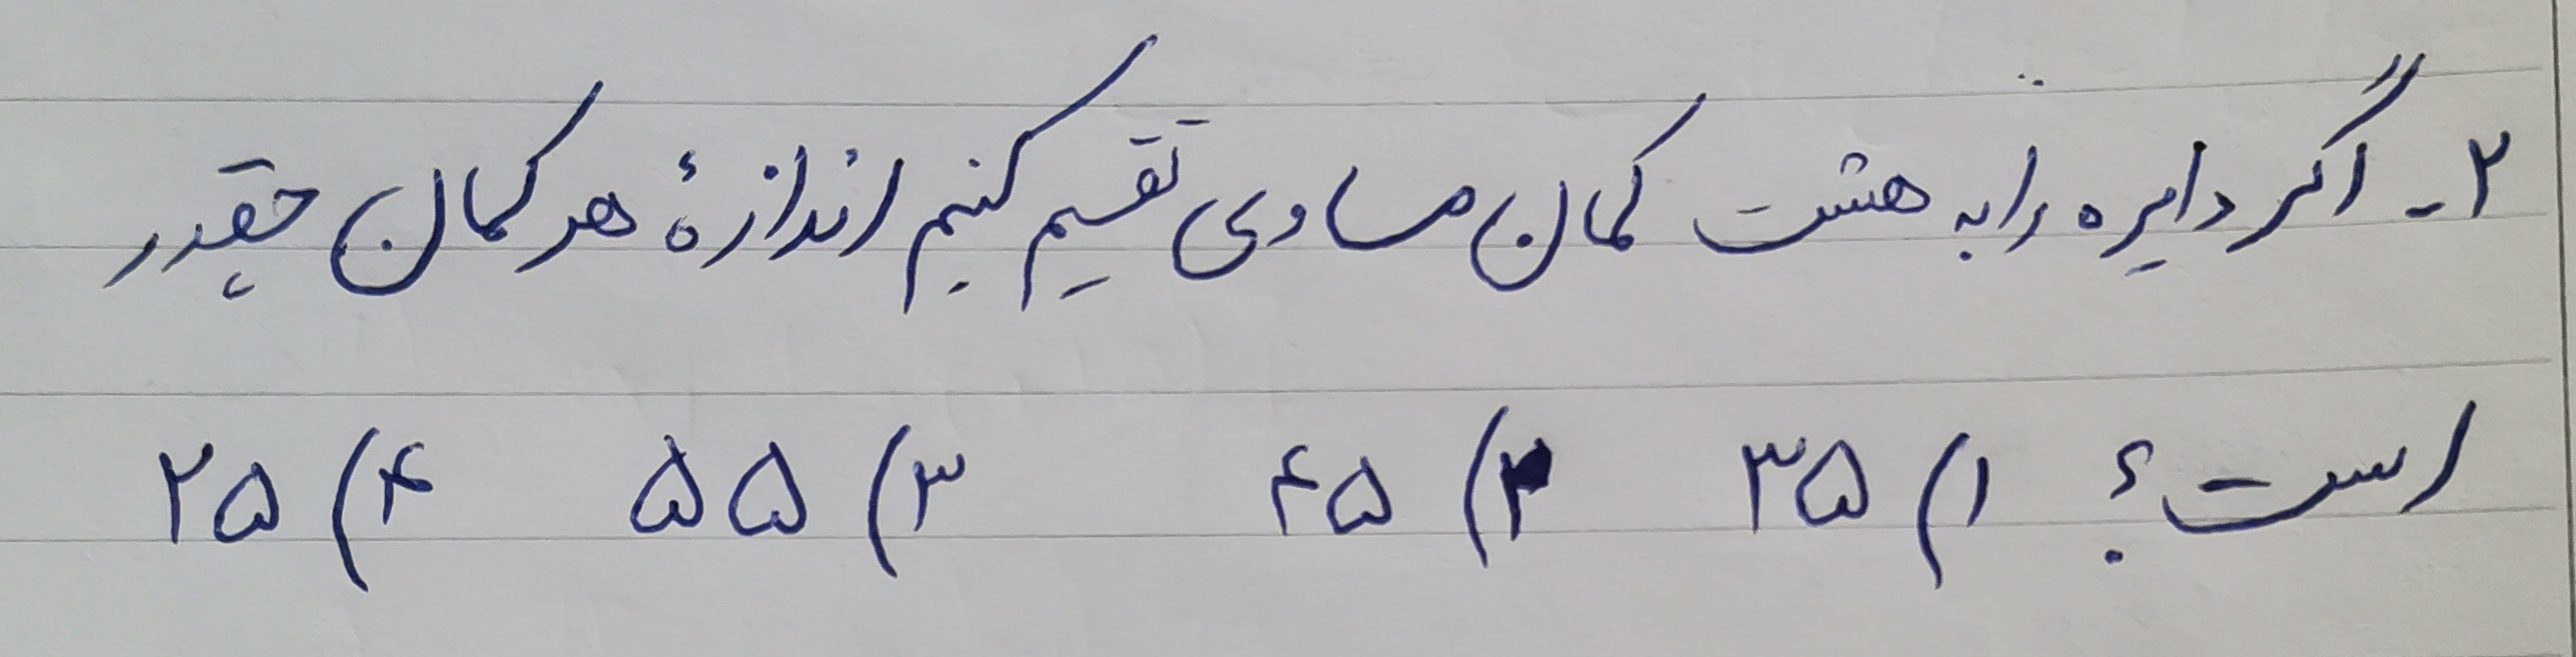 ۲- اگر دایره را به هشت کمان مساوی تقسیم کنیم اندازهٔ هر کمان چقدر
است؟ ۱) ۳۵ ۲) ۴۵ ۳) ۵۵ ۴) ۲۵